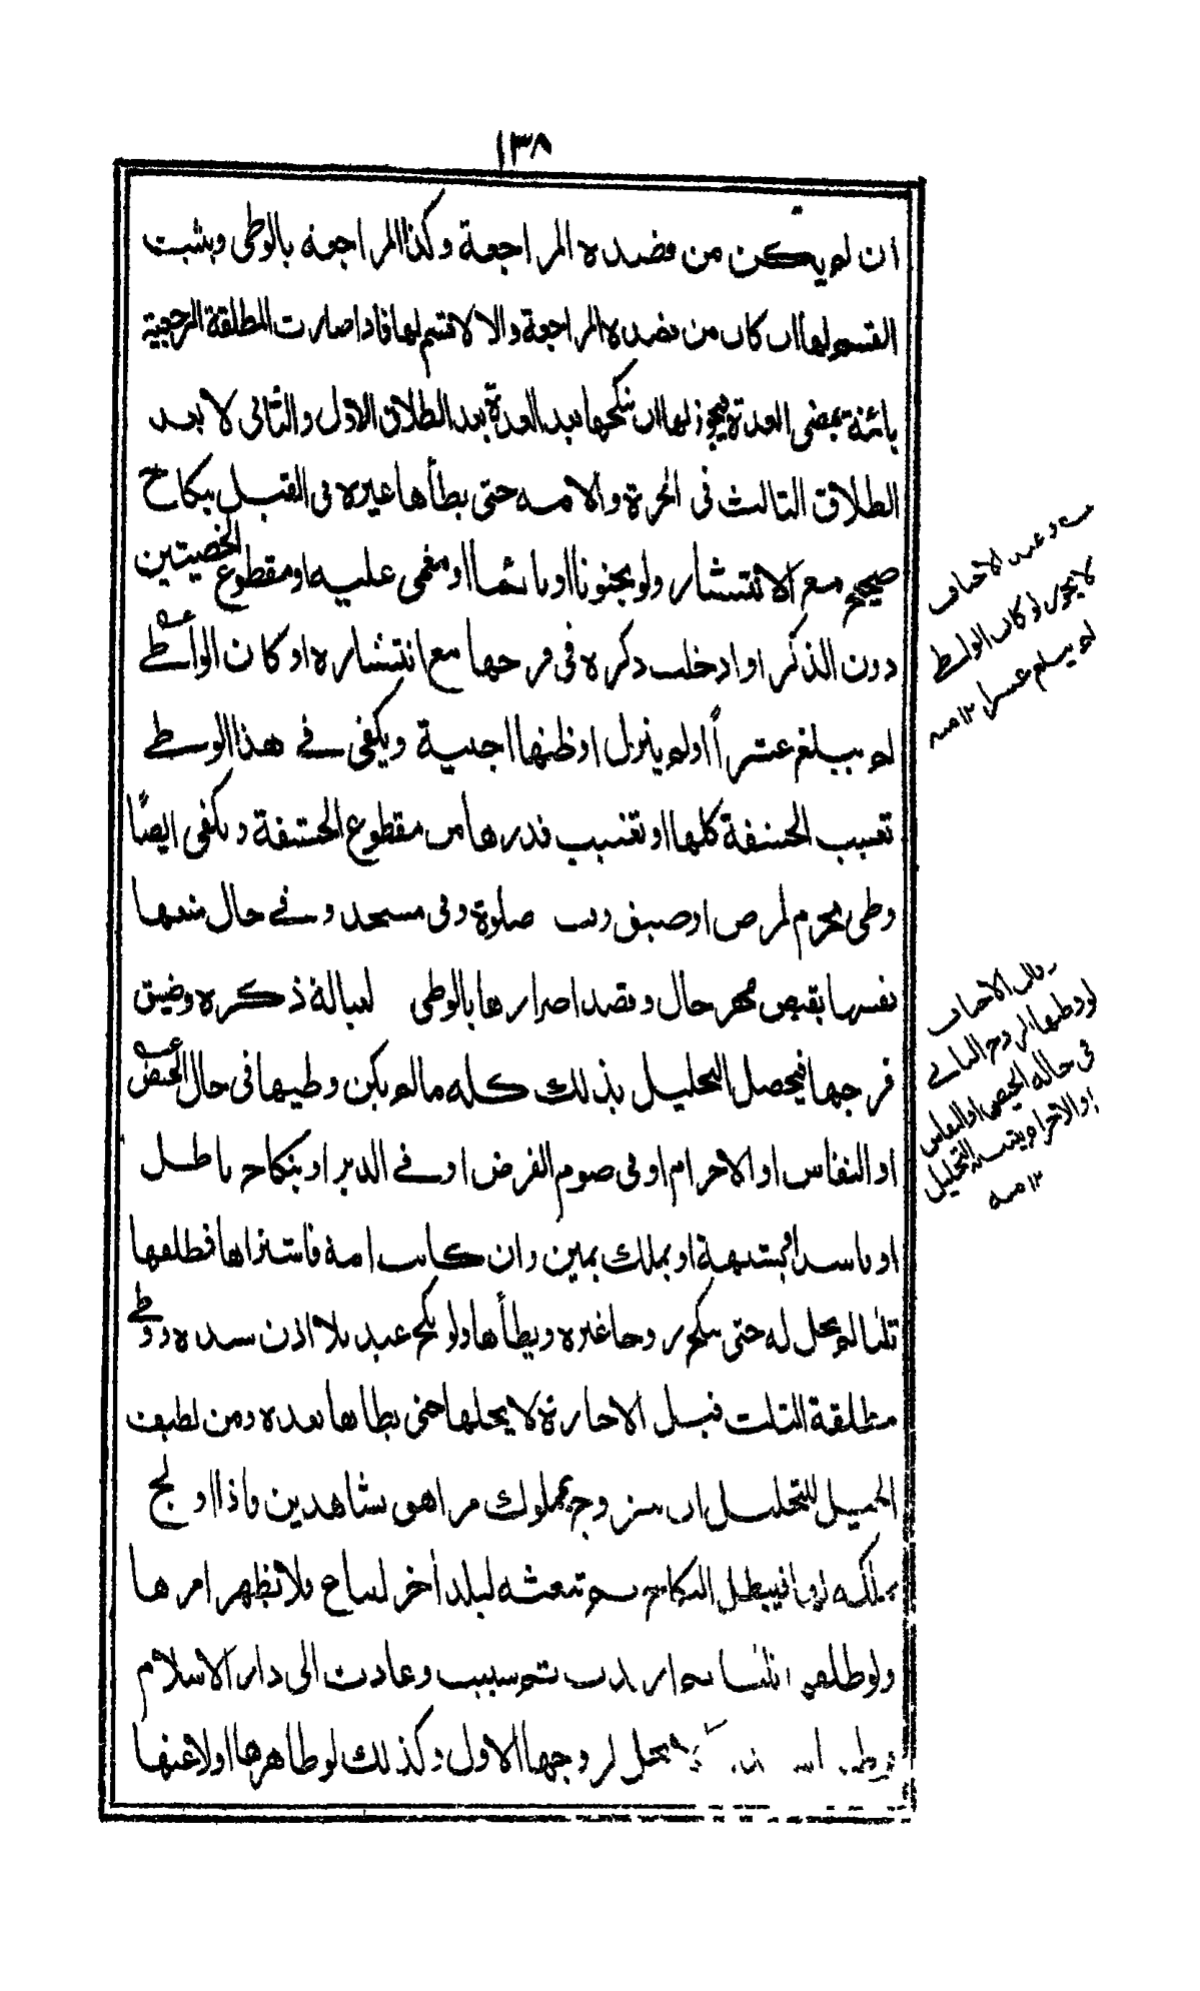 ١٣٨
ان لم يكن من قصده المراجعة وكذا المراجعة بالوطى ويثبت
القسم لها ان كان من قصده المراجعة والا لا قسم لها فاذا صارت المطلقة الرجعية
بائنة بمضى العدة يجوز لها ان ينكحها بعد العدة بعد الطلاق الاول والثانى لا بعد
الطلاق الثالث فى الحرة والامه حتى يطأها غيره فى القبل بنكاح
صحيح مع الانتشار ولو مجنونا او نائما او مغمى عليه او مقطوع الخصيتين
دون الذكر او ادخلت ذكره فى فرجها مع انتشاره او كان الواطى
لم يبلغ عشراً او لم ينزل او ظنها اجنبية ويكفى فے هذا الوطے
تغييب الحشفة كلها او تغييب قدرها من مقطوع الحشفة ويكفى ايضًا
وطى محرم لمرض او ضيق وقت صلوة وفى مسجد وفے حال منعها
نفسها بقبض مهر حال وقصد اضرارها بالوطى لعبالة ذكره وضيق
فرجها فيحصل التحليل بذلك كله ما لم يكن وطيها فى حال الحيض
او النفاس او الاحرام او فى صوم الفرض او فے الدبر او بنكاح باطل
او فاسد او بشبهة او بملك يمين وان كانت امة فاشتراها فطلقها
ثلثا لم يحل له حتى ينكح زوجا غيره ويطأها ولو نكح عبد بلا اذن سيده ووطے
مطلقة الثلث قبل الاجازة لا يحلها حتى يطاها بعده ومن لطيف
الحيل للتحليل ان يتزوج بمملوك مراهق بشاهدين فاذا اولج
يملكه لها فيبطل النكاح ثم تبعثه لبلد أخر ليباع فلا يظهر امرها
ولو طلقها ثلثا ثم ارتدت ثم سبيت وعادت الى دار الاسلام
لا يحل لزوجها الاول وكذلك لو ظاهرها او لاعنها
عه وعند الاحناف
لا يجوز لو كان الواطى
لم يبلغ عشرا ١٢ منه
وقال الاحناف
لو وطيها الزوج الثانے
فى حالة الحيض او النفاس
او الاحرام يثبت به التحليل
١٢ منه